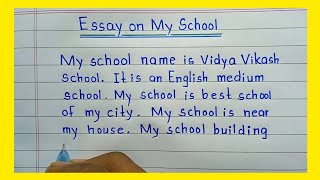 Essay on My School
My school name is Vidya Vikash
School. It is an English medium
school. My school is best school
of my city. My school is near
my house. My school building